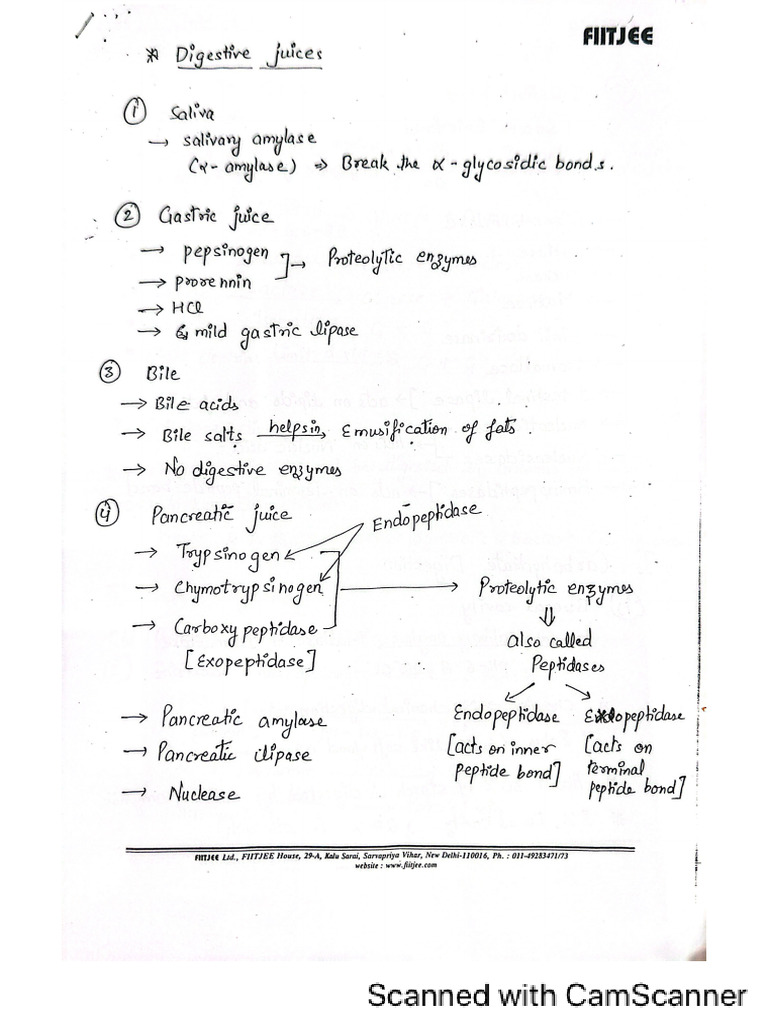 FIITJEE
* Digestive juices
① Saliva
→ salivary amylase
(α-amylase) ⇒ Break the α-glycosidic bonds.
② Gastric juice
→ pepsinogen
→ Proteolytic enzymes
→ prorennin
→ HCl
→ mild gastric lipase
③ Bile
→ Bile acids
→ Bile salts helps in, Emusification of fats.
→ No digestive enzymes
④ Pancreatic juice
Endopeptidase
→ Trypsinogen
→ Chymotrypsinogen → Proteolytic enzymes
→ Carboxy peptidase
[Exopeptidase]
⇓
also called
Peptidases
→ Pancreatic amylase
→ Pancreatic lipase
→ Nuclease
Endopeptidase
[acts on inner
peptide bond]
Exopeptidase
[acts on
terminal
peptide bond]
FIITJEE Ltd., FIITJEE House, 29-A, Kalu Sarai, Sarvapriya Vihar, New Delhi-110016, Ph. : 011-49283471/73
website : www.fiitjee.com
Scanned with CamScanner